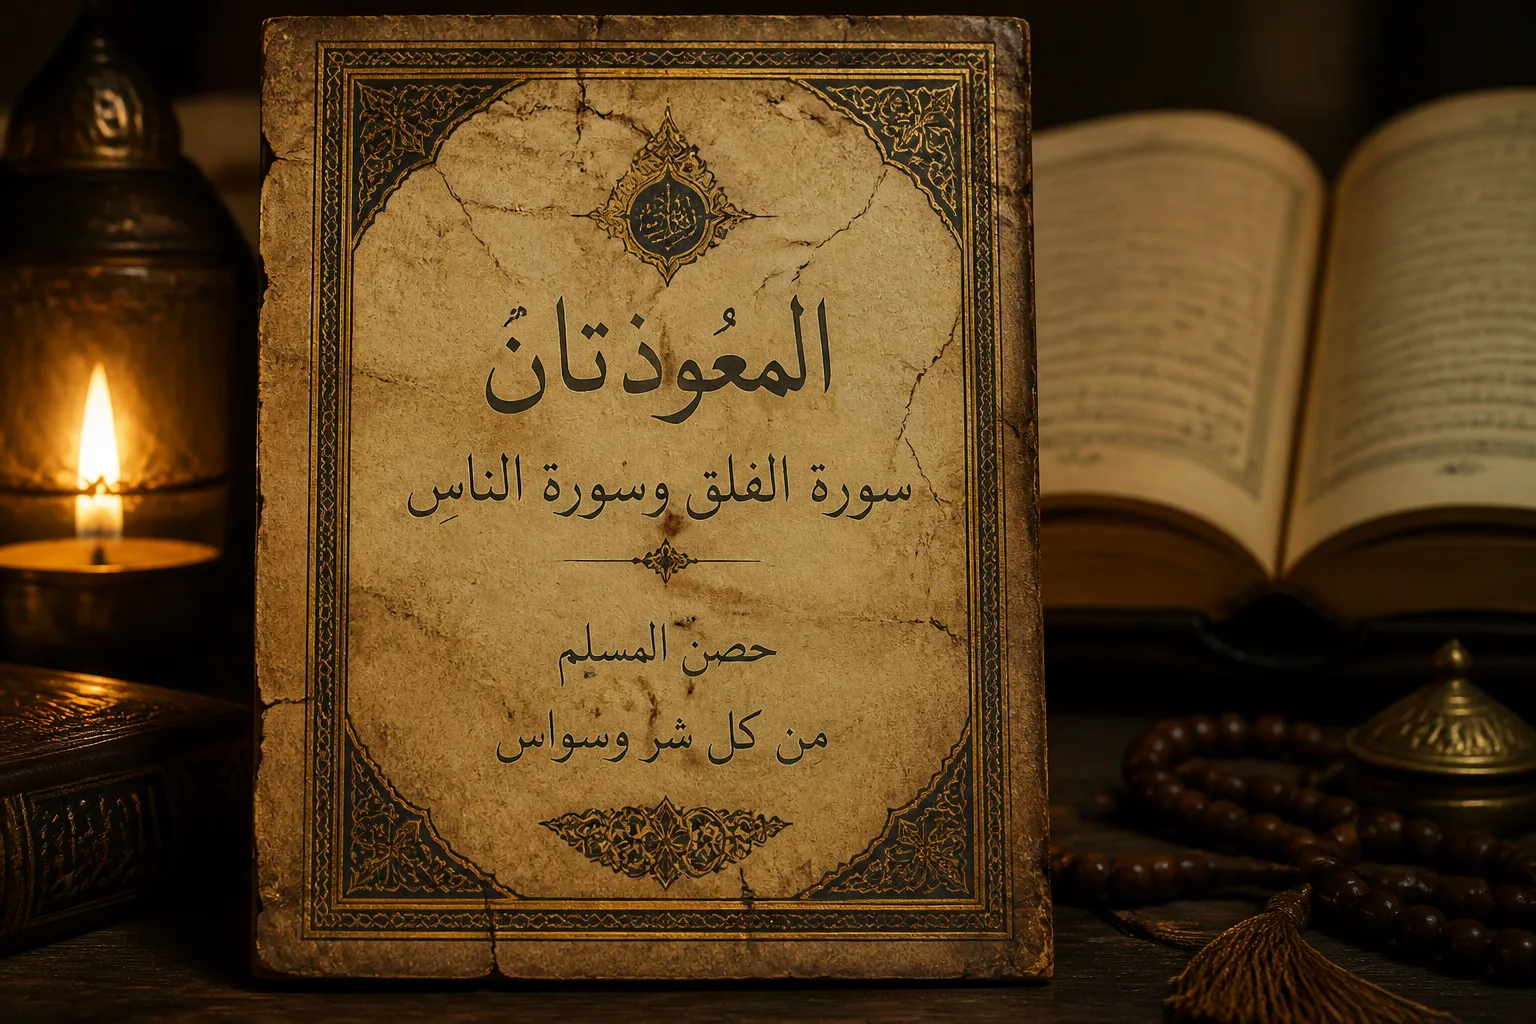 المعُوذتانٌ
سورة الفلق وسورة الناسِ
حصن المسلم
مِن كل شر وسواس